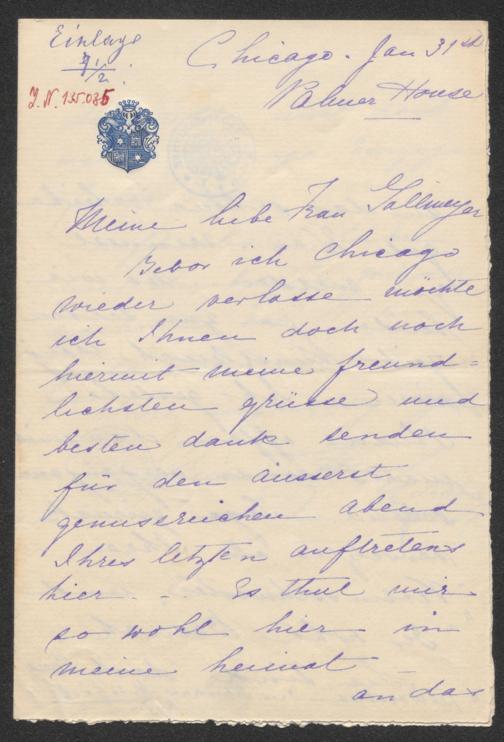 Einlage
7 1/2.
J. N. 135.085
Chicago. Jan 31st
Palmer House
Meine liebe Frau Gallmeyer
Bevor ich Chicago
wieder verlasse möchte
ich Ihnen doch noch
hiermit meine freund=
lichsten grüsse und
besten dank senden
für den äusserst
genussreichen abend
Ihres letzten auftretens
hier. – Es thut mir
so wohl hier in
meine heimat
an das